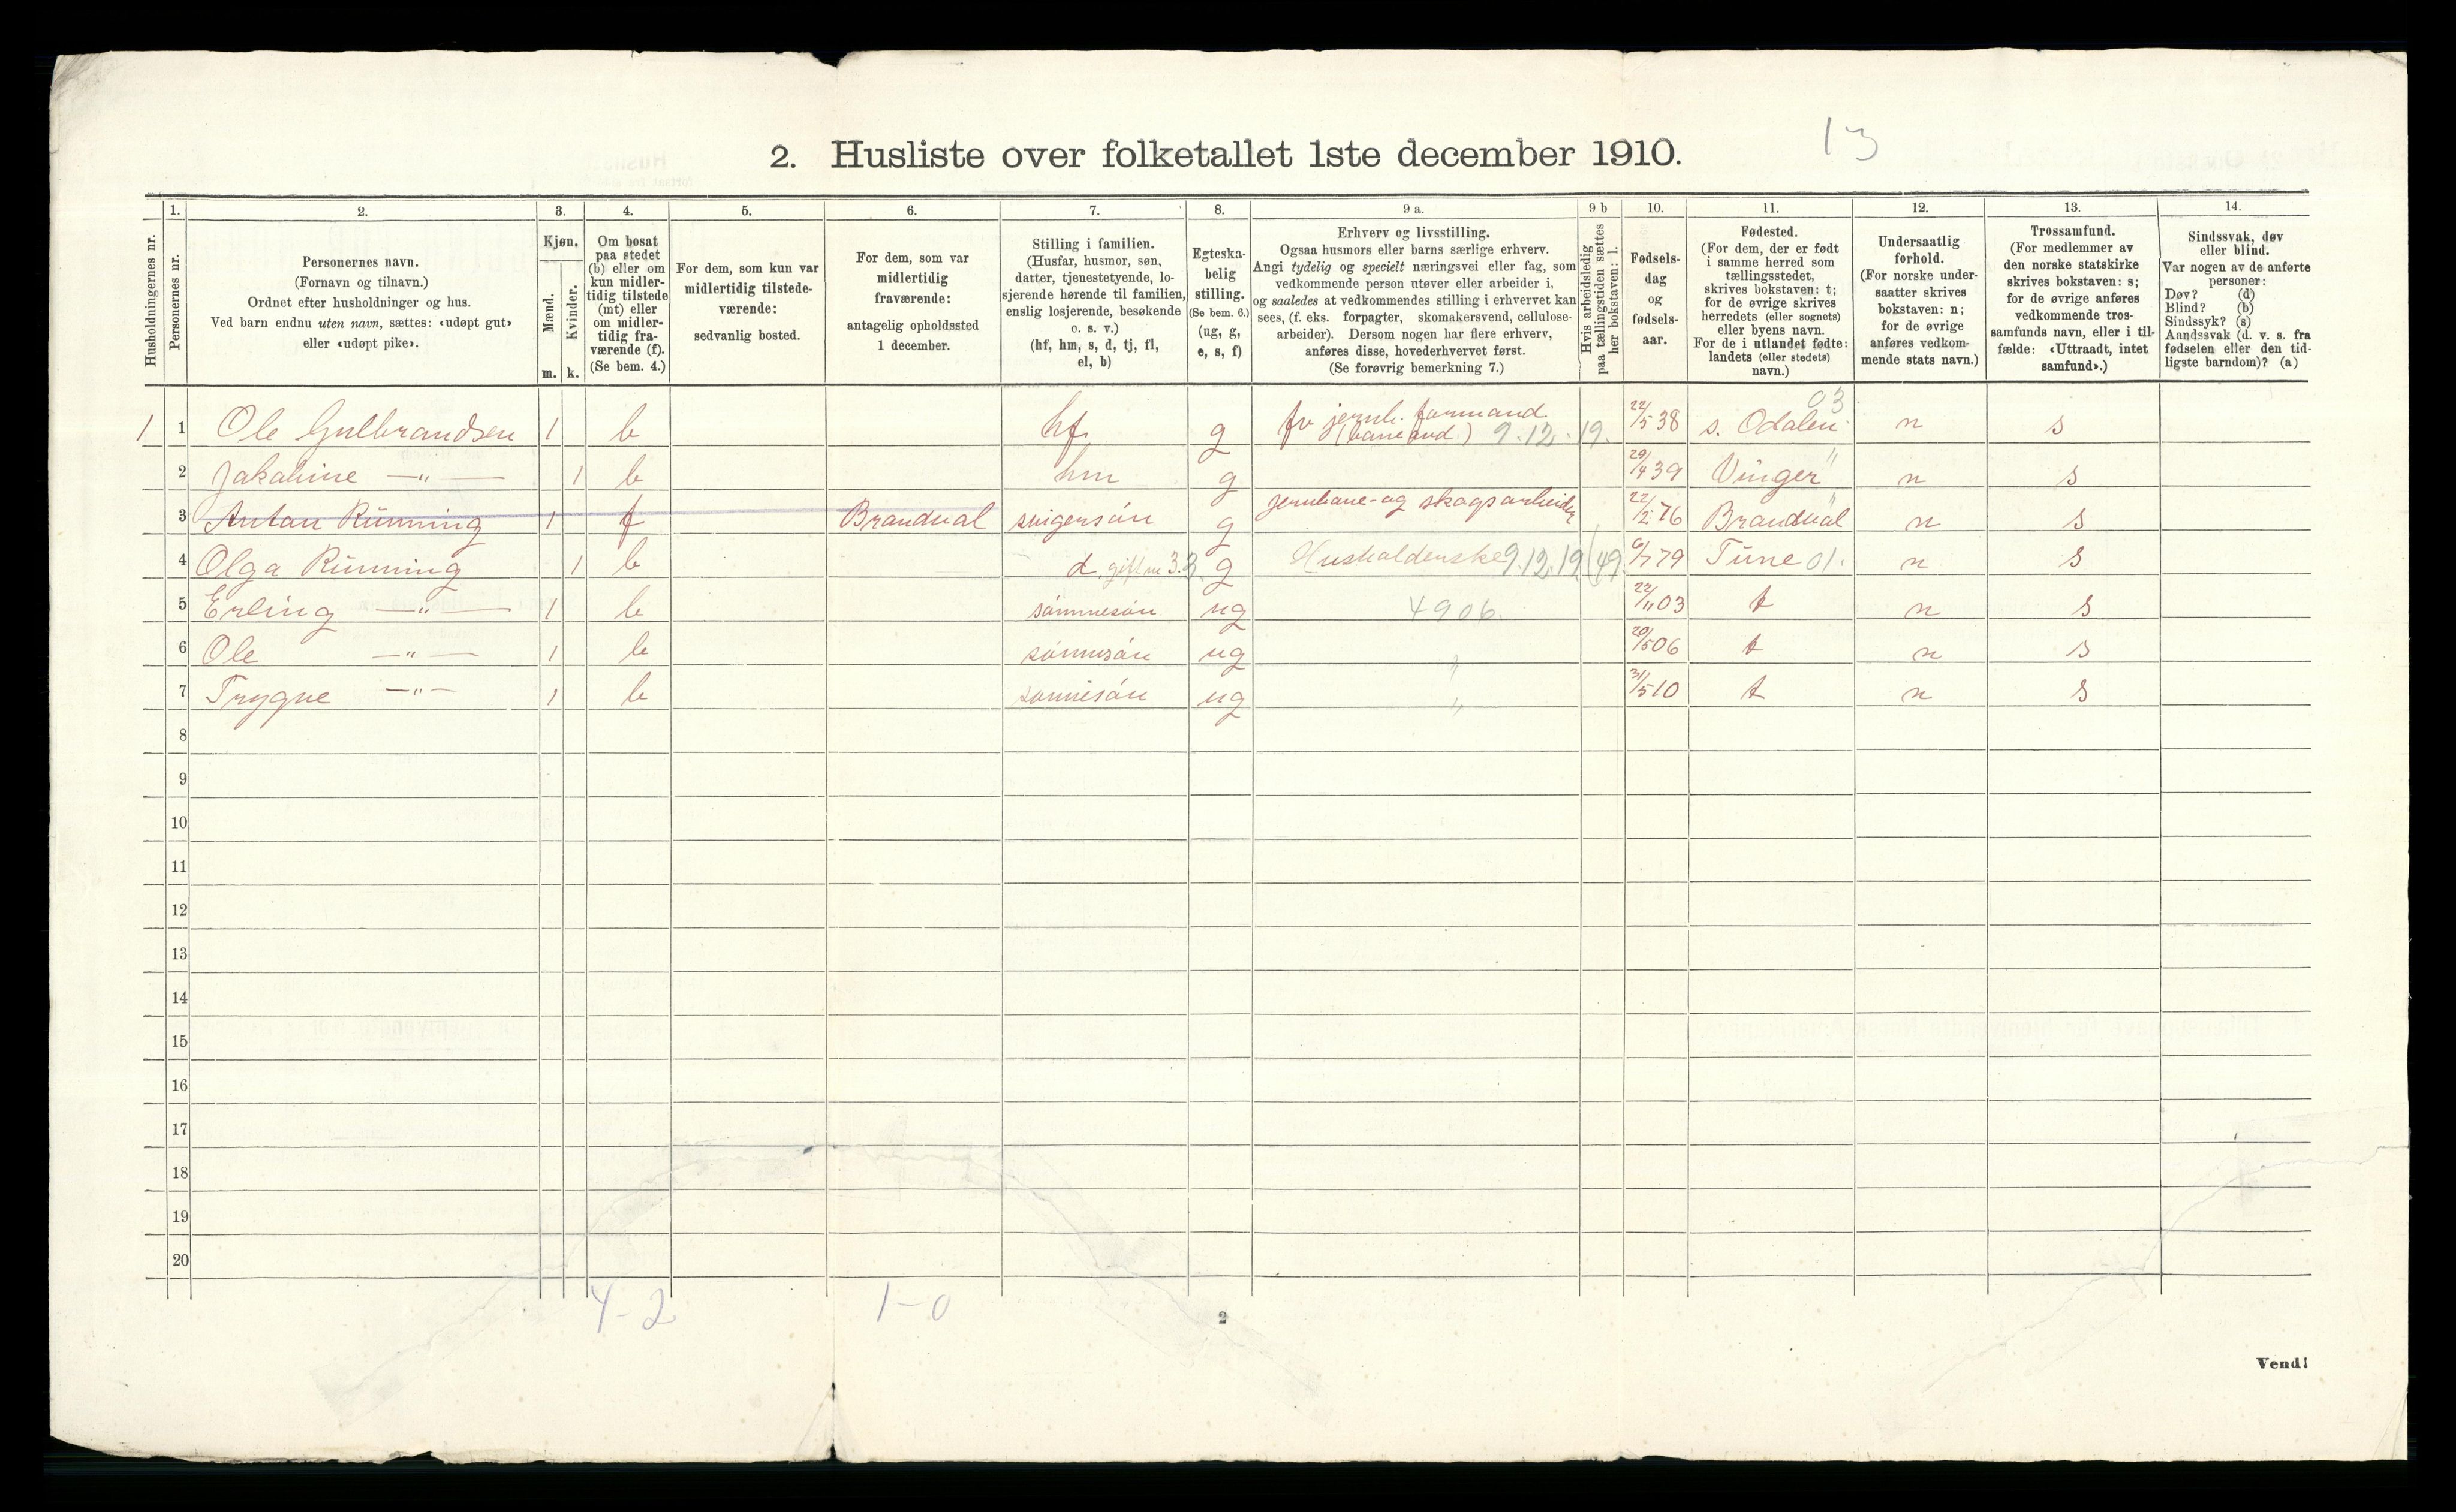 13
2. Husliste over folketallet 1ste december 1910.
1. 2. 3. 4. 5. 6. 7. 8. 9 a. 9 b 10. 11. 12. 13. 14.
Husholdningernes nr.
Personernes nr.
Personernes navn.
(Fornavn og tilnavn.)
Ordnet efter husholdninger og hus.
Ved barn endnu uten navn, sættes: «udøpt gut»
eller «udøpt pike».
Kjøn.
Mænd.
Kvinder.
m. k.
Om bosat
paa stedet
(b) eller om
kun midler-
tidig tilstede
(mt) eller
om midler-
tidig fra-
værende (f).
(Se bem. 4.)
For dem, som kun var
midlertidig tilstede-
værende:
sedvanlig bosted.
For dem, som var
midlertidig
fraværende:
antagelig opholdssted
1 december.
Stilling i familien.
(Husfar, husmor, søn,
datter, tjenestetyende, lo-
sjerende hørende til familien,
enslig losjerende, besøkende
o. s. v.)
(hf, hm, s, d, tj, fl,
el, b)
Egteska-
belig
stilling.
(Se bem. 6.)
(ug, g,
e, s, f)
Erhverv og livsstilling.
Ogsaa husmors eller barns særlige erhverv.
Angi tydelig og specielt næringsvei eller fag, som
vedkommende person utøver eller arbeider i,
og saaledes at vedkommendes stilling i erhvervet kan
sees, (f. eks. forpagter, skomakersvend, cellulose-
arbeider). Dersom nogen har flere erhverv,
anføres disse, hovederhvervet først.
(Se forøvrig bemerkning 7.)
Hvis arbeidsledig
paa tællingstiden sættes
her bokstaven: l.
Fødsels-
dag
og
fødsels-
aar.
Fødested.
(For dem, der er født
i samme herred som
tællingsstedet,
skrives bokstaven: t;
for de øvrige skrives
herredets (eller sognets)
eller byens navn.
For de i utlandet fødte:
landets (eller stedets)
navn.)
Undersaatlig
forhold.
(For norske under-
saatter skrives
bokstaven: n;
for de øvrige
anføres vedkom-
mende stats navn.)
Trossamfund.
(For medlemmer av
den norske statskirke
skrives bokstaven: s;
for de øvrige anføres
vedkommende tros-
samfunds navn, eller i til-
fælde: «Uttraadt, intet
samfund».)
Sindssvak, døv
eller blind.
Var nogen av de anførte
personer:
Døv? (d)
Blind? (b)
Sindssyk? (s)
Aandssvak (d. v. s. fra
fødselen eller den tid-
ligste barndom)? (a)
1 1 Ole Gulbrandsen 1 b hf. g fv jernb. formand. 9.12.19. 22/5 38 s. Odalen 03. n s
2 Jakobine —"— 1 b hm g 29/4 39 Vinger " n s
3 Anton Rünning 1 f Brandval svigersön g jernbane- og skogsarbeider 22/2 76 Brandval " n s
4 Olga Rünning 1 b d. gift m 3. g Husholderske 9.12.19 (49. 6/7 79 Tune 01. n s
5 Erling —"— 1 b sönnesön ug 4906. 22/11 03 t n s
6 Ole —"— 1 b sönnesön ug " 20/5 06 t n s
7 Trygve —"— 1 b sonnesön ug " 31/5 10 t n s
8
9
10
11
12
13
14
15
16
17
18
19
20
4-2 1-0
2
Vend!